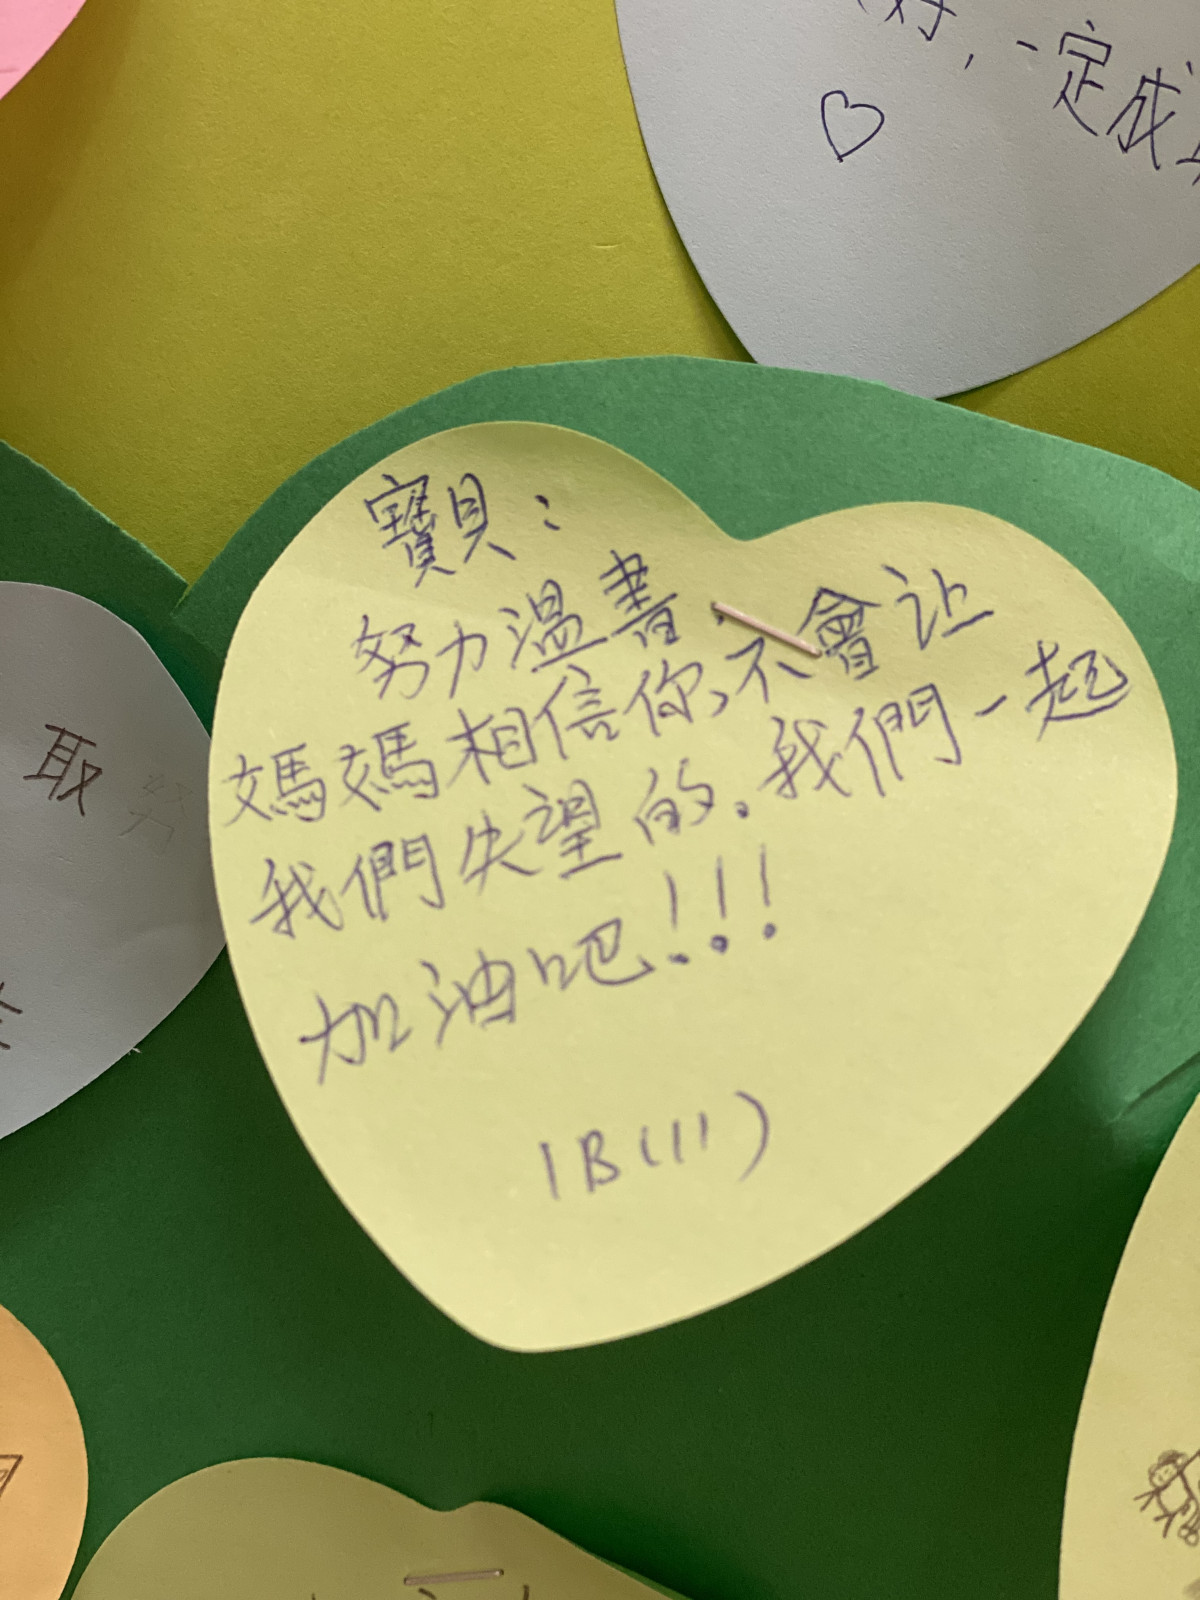 好,一定成
寶貝:
努力溫書.
媽媽相信你,不會让
我們失望的.我們一起
加油吧!!!
1B(11)
取努